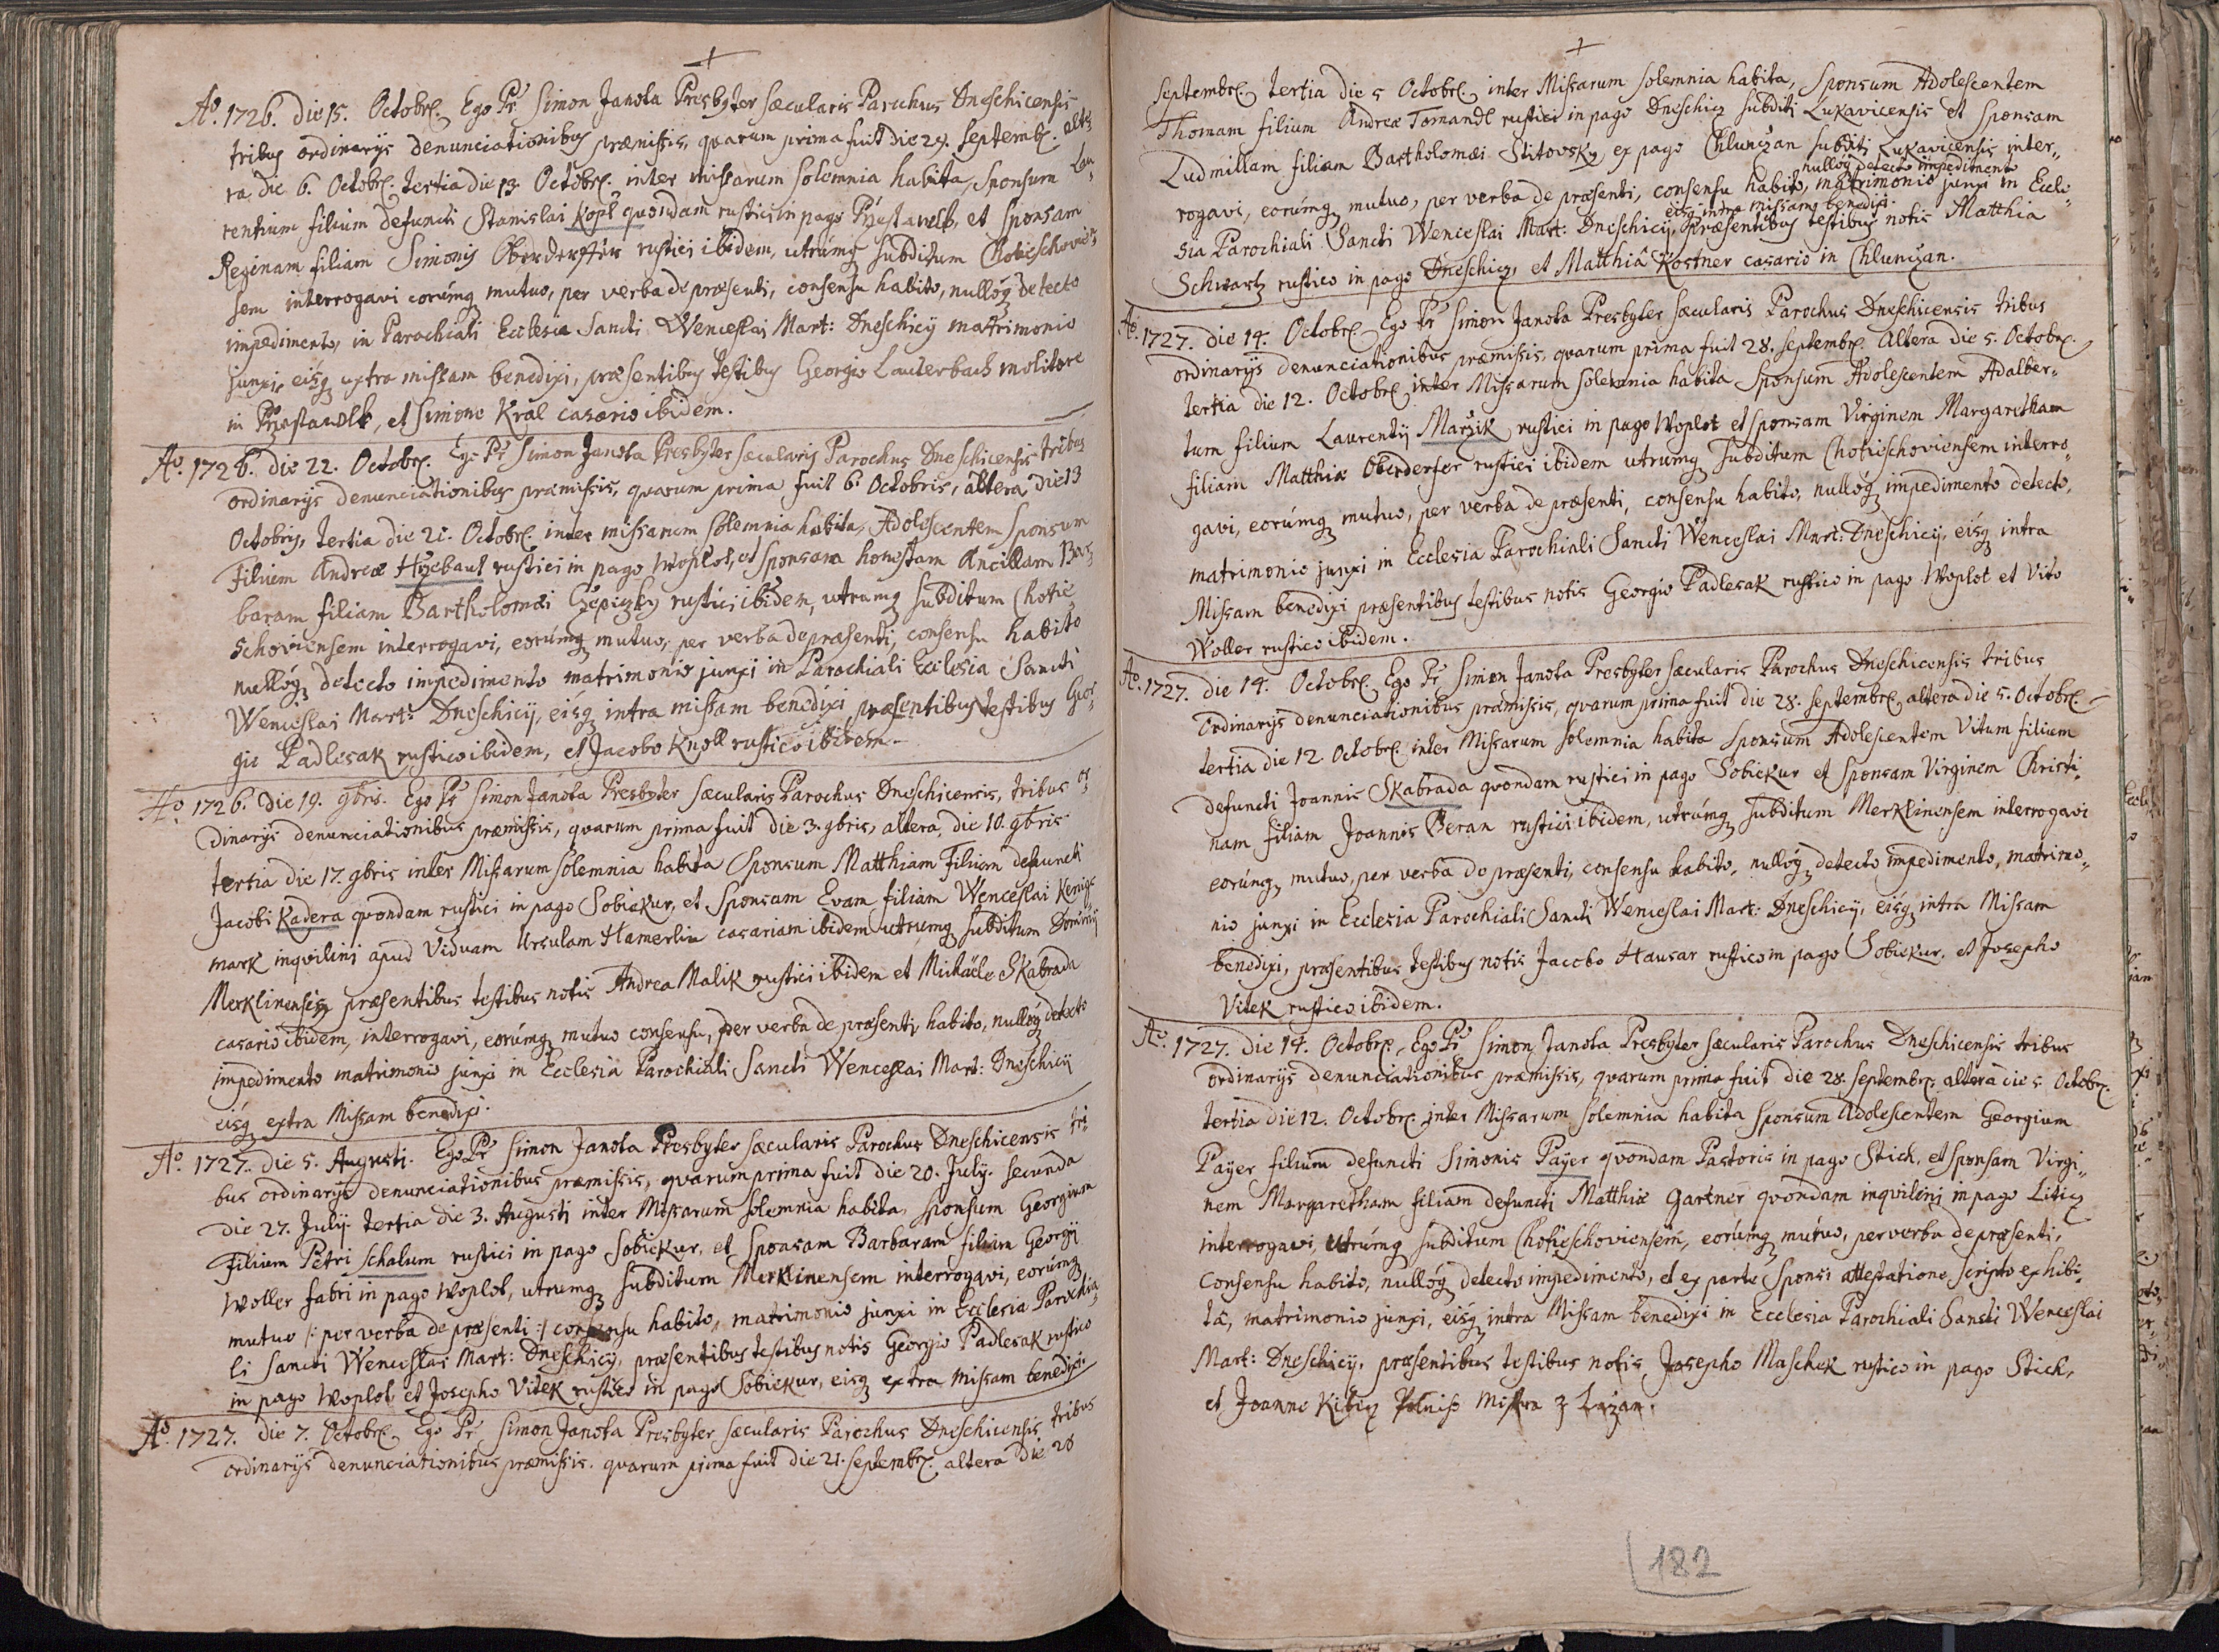 Aõ. 1726. Die 15. Octobr. Ego Pr Simon Janota Presbyter sæcularis Parochus Dneschicensis
tribus ordinarijs denunciationibus præmissis, quarum prima fuit die 29. Septembr. alte„
ra, die 6. Octobr. tertia die 13. Octobr. inter missarum solemnia habita, Sponsum Lau„
rentium filium defuncti Stanislai Kopl quondam rustici in pago et Sponsam
Reginam filiam Simonis Oberderffer rustici ibidem, utrúmq subditum Chotieschovien„
sem interrogavi eorúmq mutuo, per verba de præsenti, consensu habito, nullóq detecto
impedimento, in Parochiali Ecclesia Sancti Wenceslai Mart: Dneschicij matrimonio
junxi, eisq extra missam benedixi, præsentibus testibus Georgio Lauterbach molitore
in et Simone Kral casario ibidem.
Aõ. 1726. die 22. Octobr. Ego Pr Simon Janota Presbyter sæcularis Parochus Dneschicensis tribus
ordinarijs denunciationibus præmissis, quarum prima fuit 6. Octobris, altera die 13
Octobris, tertia die 21. Octobr. inter missarum solemnia habita, Adolescentem Sponsum
filium Andreæ Hrzebaut rustici in pago Woplot, et Sponsam honestam Ancillam Bar„
baram filiam Bartholomæi Czepiczky rustici ibidem, utrumq subditum Chotie„
schoviensem interrogavi, eorúmq mutuo, per verba de præsenti, consensu habito
nullóq detecto impedimento matrimonio junxi in Parochiali Ecclesia Sancti
Wenceslai Mart: Dneschicij, eisq intra missam benedixi præsentibus testibus Geor„
gio Padlesak rustico ibidem, et Jacobo Knoll rustico ibidem.
Aõ. 1726. Die 19. 9bris. Ego Pr Simon Janota Presbyter sæcularis Parochus Dneschicensis, tribus or„
dinarijs denunciationibus præmissis, quarum prima fuit die 3. 9bris, altera die 10. 9bris
tertia die 17. 9bris inter Missarum solemnia habita Sponsum Matthiam Filium defuncti
Jacobi Kadera quondam rustici in pago Sobiekur, et Sponsam Evam filiam Wenceslai Kenigs
mark inqvilini apud Viduam Ursulam Hamerlin casariam ibidem utrumq subditum Dominij
Merklinensis, præsentibus testibus notis Andrea Malik rustici ibidem et Michaële Skabrada
casario ibidem, interrogavi, eorúmq mutuo consensu, per verba de præsenti, habito, nullóq detecto
impedimento matrimonio junxi in Ecclesia Parochiali Sancti Wenceslai Mart: Dneschicij
eisq extra Missam benedixi.
Aõ. 1727. die 5. Augusti. Ego Pr Simon Janota Presbyter sæcularis Parochus Dneschicensis tri„
bus ordinarijs denunciationibus præmissis, quarum prima fuit die 20. July. secunda
die 27. July. tertia die 3. Augusti inter Missarum solemnia habita, Sponsum Georgium
Filium Petri Schalum rustici in pago Sobiekur, et Sponsam Barbaram filiam Georgij
Woller fabri in pago Woplot, utrumq subditum Merklinensem interrogavi, eorúmq
mutuo /: per verba de præsenti :/ consensu habito, matrimonio junxi in Ecclesia Parochia„
li Sancti Wenceslai Mart: Dneschicij, præsentibus testibus notis Georgio Padlesak rustico
in pago Woplot et Josepho Vitek rustico in pago Sobiekur, eisq extra Missam benedixi.
Aõ. 1727. die 7. Octobr. Ego Pr Simon Janota Presbyter sæcularis Parochus Dneschicensis tribus
ordinarijs denunciationibus præmissis. quarum prima fuit die 21. Septembr. altera Die 28
Septembr. tertia die 5 Octobr. inter Missarum solemnia habita, Sponsum Adolescentem
Thomam filium Andreæ Tomandl rustici in pago Dneschicz subditi Lukavicensis et Sponsam
Ludmillam filiam Bartholomæi Stitovsky ex pago Chluniczan subditi Lukavicensis inter„
nullóq detecto impedimento
rogavi, eorúmq mutuo, per verba de præsenti, consensu habito, matrimonio junxi in Eccle„
eisq intra missam benedixi.
sia Parochiali Sancti Wenceslai Mart: Dneschicij, præsentibus testibus notis Matthia
Schwartz rustico in pago Dneschicz, et Matthiâ Kostner casario in Chluniczan.
Aõ. 1727. die 14. Octobr. Ego Pr Simon Janota Presbyter sæcularis Parochus Dneschicensis tribus
ordinarijs denunciationibus præmissis, quarum prima fuit 28. Septembr. Altera die 5. Octobr.
tertia die 12. Octobr. inter Missarum solemnia habita Sponsum Adolescentem Adalber„
tum filium Laurentij Marzik rustici in pago Woplot et Sponsam Virginem Margaretham
filiam Matthiæ Oberderfer rustici ibidem utrumq subditum Chotieschoviensem interro„
gavi, eorúmq mutuo, per verba de præsenti, consensu habito, nullóq impedimento detecto,
matrimonio junxi in Ecclesia Parochiali Sancti Wenceslai Mart: Dneschicij, eisq intra
Missam benedixi præsentibus testibus notis Georgio Padlesak rustico in pago Woplot et Vito
Woller rustico ibidem.
Aõ. 1727. die 14. Octobr. Ego Pr Simon Janota Presbyter sæcularis Parochus Dneschicensis tribus
ordinarijs denunciationibus præmissis, quarum prima fuit die 28. Septembr. altera die 5. Octobr.
tertia die 12 Octobr. inter Missarum solemnia habita Sponsum Adolescentem Vitum filium
defuncti Joannis Skabrada quondam rustici in pago Sobiekur et Sponsam Virginem Christi„
nam filiam Joannis Beran rustici ibidem, utrúmq subditum Merklinensem interrogavi
eorúmq mutuo, per verba de præsenti, consensu habito, nullóq detecto impedimento, matrimo„
nio junxi in Ecclesia Parochiali Sancti Wenceslai Mart: Dneschicij, eisq intra Missam
benedixi, præsentibus testibus notis Jacobo Hausar rustico in pago Sobiekur, et Josepho
Vitek rustico ibidem.
Aõ. 1727. die 14. Octobr. Ego Pr Simon Janota Presbyter sæcularis Parochus Dneschicensis tribus
ordinarijs denunciationibus præmissis, quarum prima fuit die 28. Septembr. altera die 5. Octobr.
tertia die 12. Octobr. inter Missarum solemnia habita Sponsum Adolescentem Georgium
Payer filium defuncti Simonis Payer quondam Pastoris in pago Stich, et Sponsam Virgi„
nem Margaretham filiam defuncti Matthiæ Gartner quondam inqvilini in pago Liticz
interrogavi, utrúmq subditum Chotieschoviensem, eorúmq mútuo, per verba de præsenti,
consensu habito, nullóq detecto impedimento, et ex parte Sponsi attestatione scripto exhibi„
tâ, matrimonio junxi, eisq intra Missam benedixi in Ecclesia Parochiali Sancti Wenceslai
Mart: Dneschicij, præsentibus testibus notis Josepho Maschek rustico in pago Stich,
et Joanne z Lazan.
182